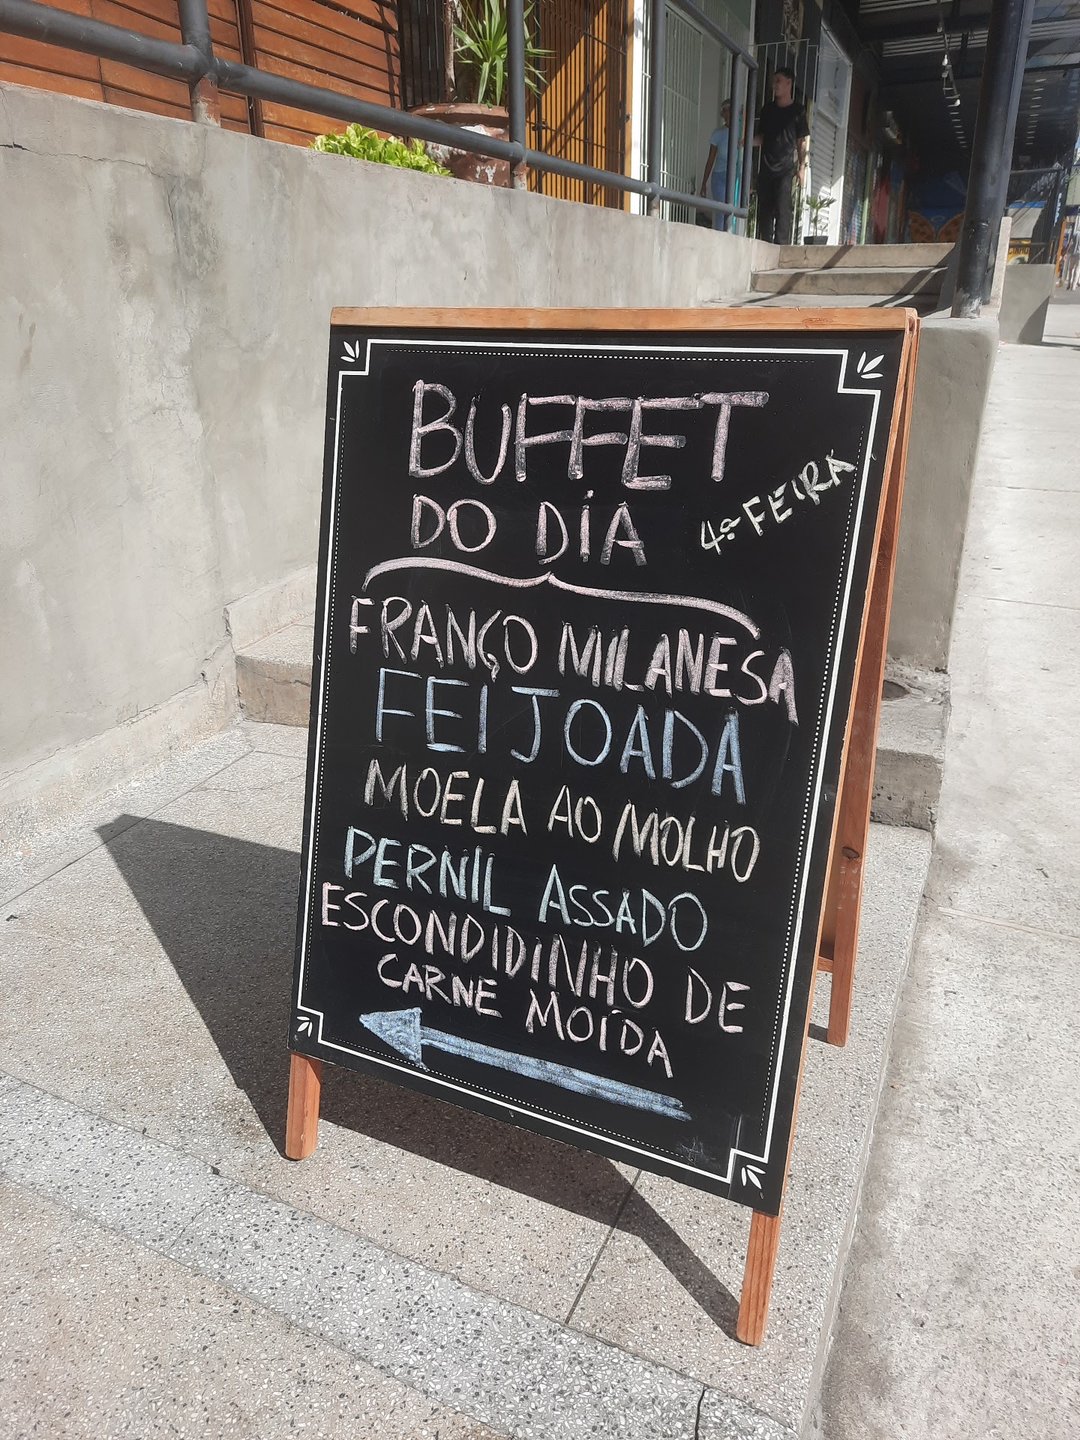 BUFFET
DO DÍA
4ª FEIRA
FRANÇO MILANESA
FEIJOADA
MOELA AO MOLHO
PERNIL ASSADO
ESCONDIDINHO DE
CARNE MOÍDA